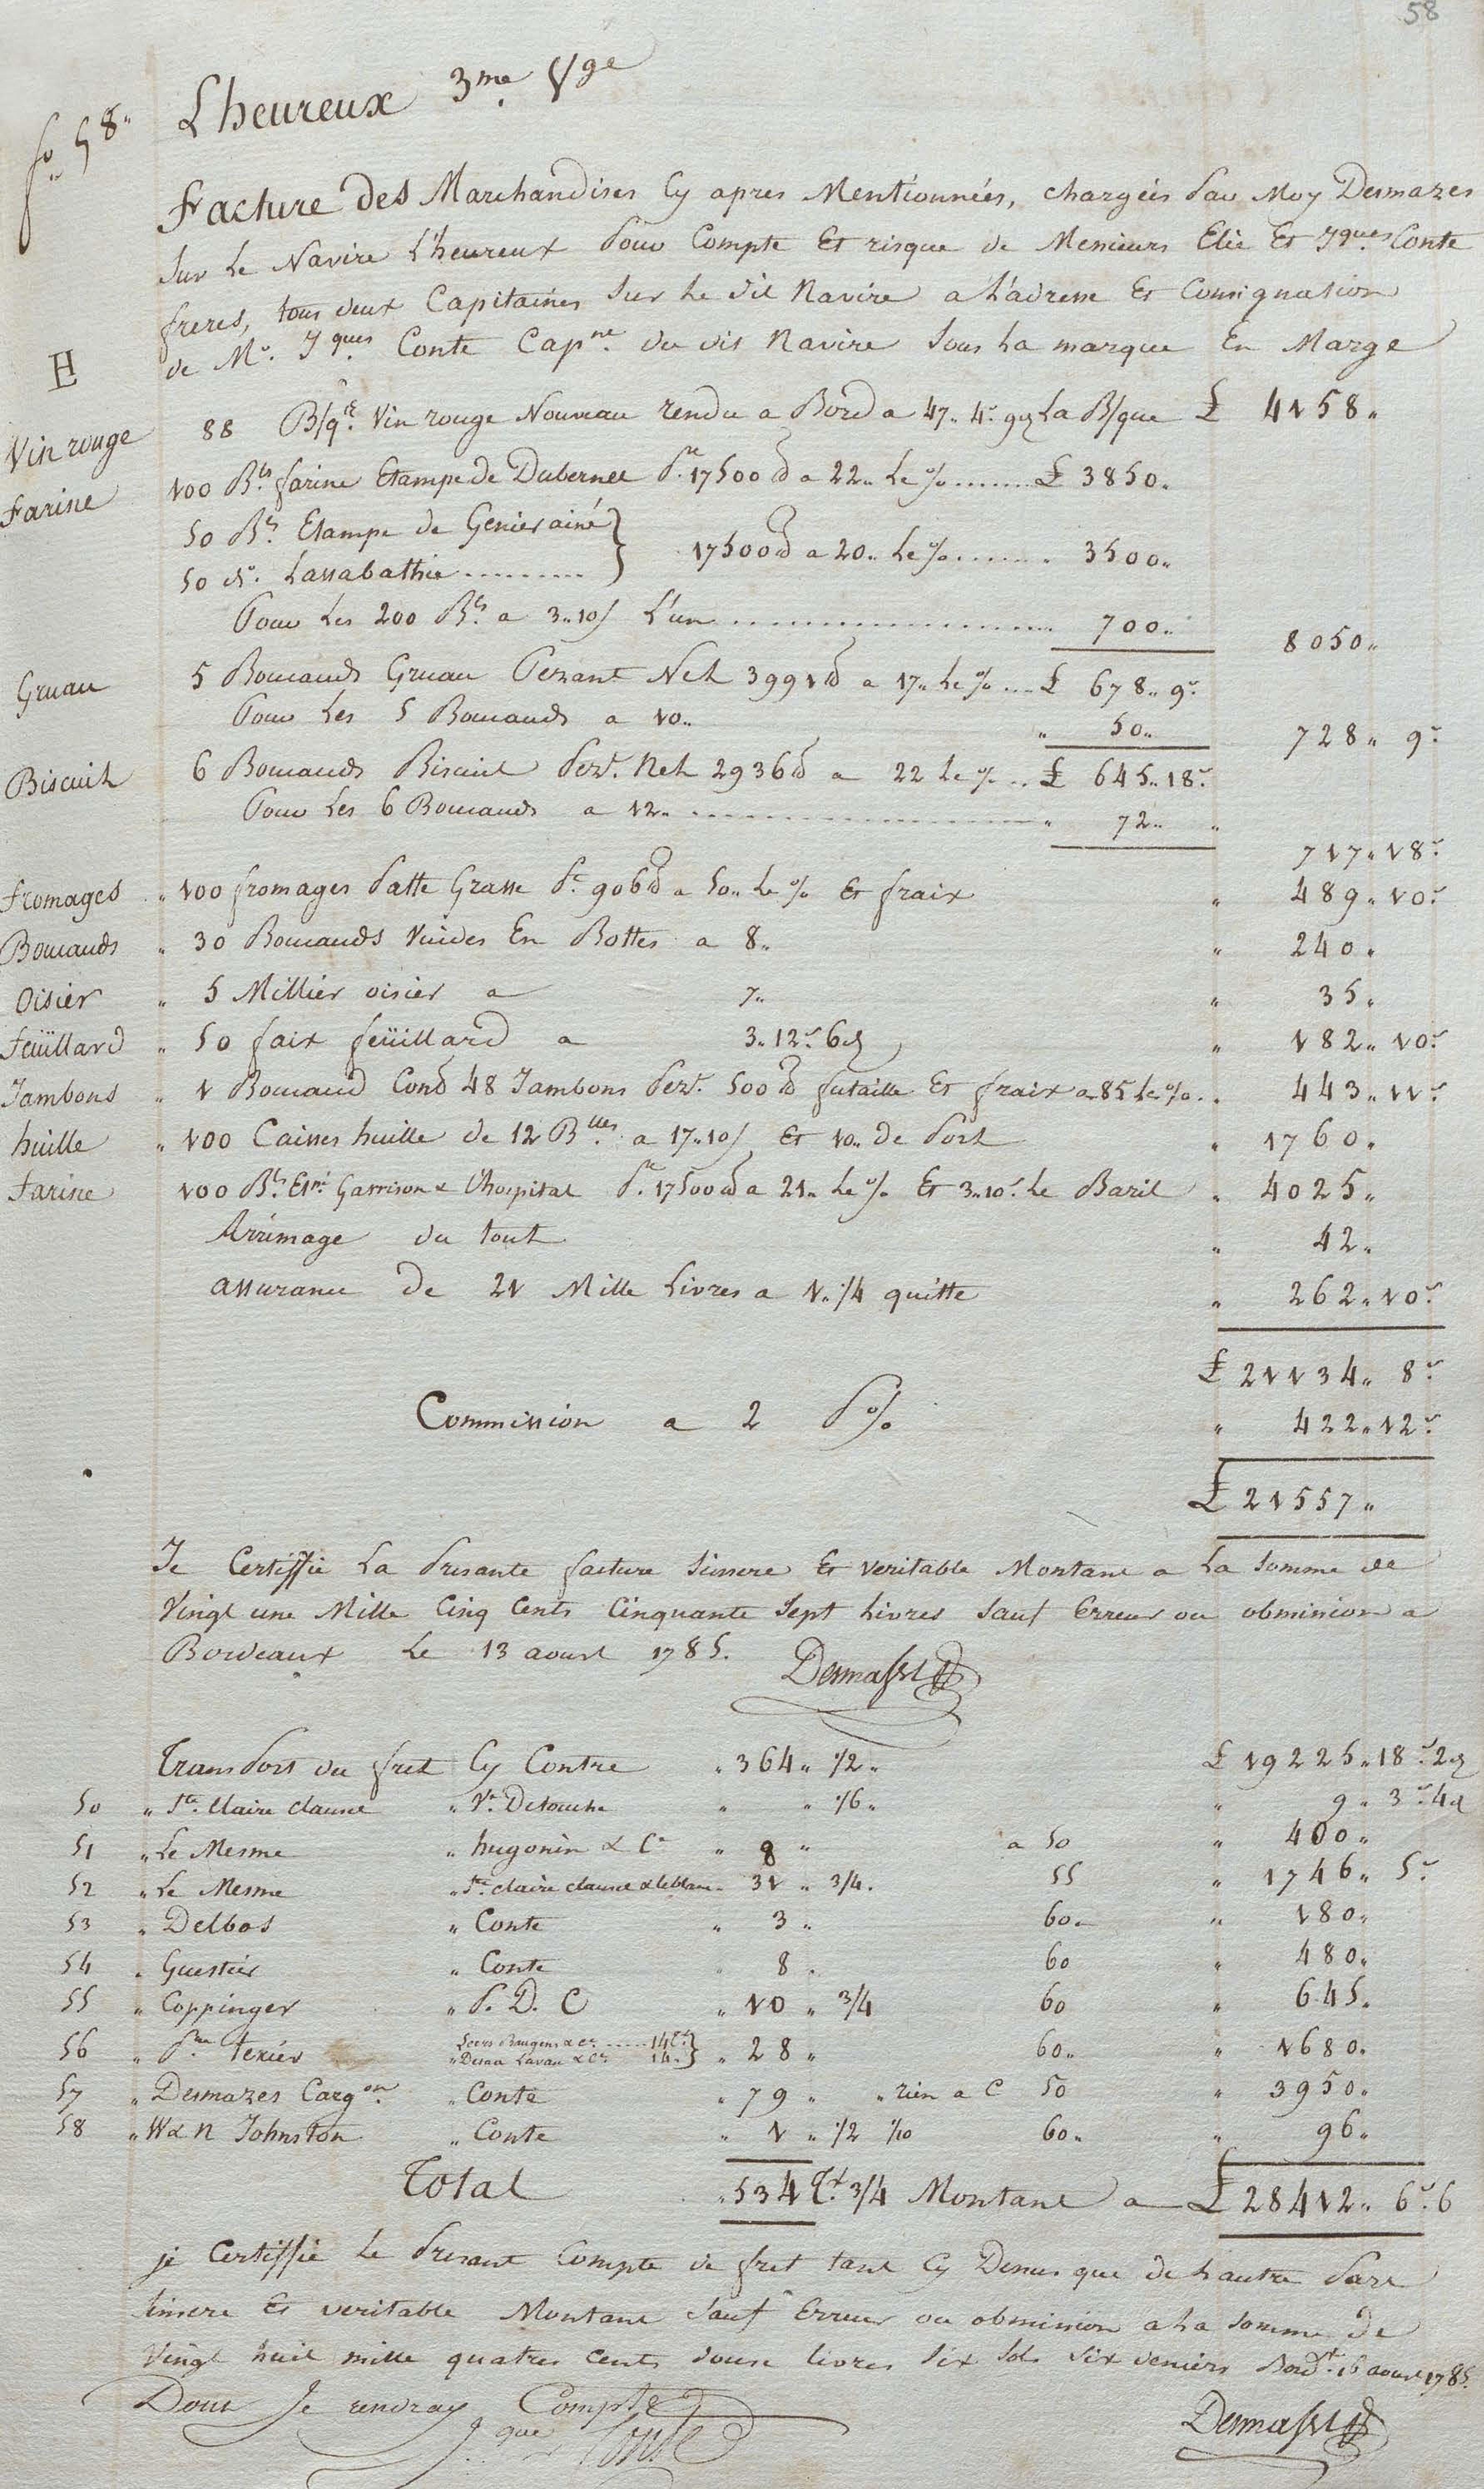 58
fo. 58"
L'heureux 3me. Vge
Facture des Marchandises Cy apres Mentionnées, chargées Par Moy Desmazes
Sur Le Navire L'heureux Pour Compte Et risque de Messieurs Elie Et Jques. Conte
freres, tous deux Capitaines Sur Le dit Navire a L'adresse Et Consignation
de Mr. Jques. Conte Capne. du dit Navire Sous La marque En Marge
H
Vin rouge 88 B/qes. Vin rouge Nouveau rendu a Bord a 47.. 4s. 9d La B/que £ 4158..
Farine 100 Bls. farine Etampe de Dubernet Pt. 17500 lb a 22.. Le % ...... £ 3850..
50 Bls. Etampe de Genies ainé } 17500 lb a 20.. Le % ...... 3500..
50 do. Lassabathie ......... }
Pour Les 200 Bls. a 3..10/ L'un ........................ 700.. 8050..
Gruau 5 Boucauds Gruau Pezant Net 3991 lb a 17.. Le % ... £ 678.. 9s.
Pour Les 5 Boucauds a 10.. " 50.. 728.. 9s.
Biscuit 6 Boucauds Biscuit Pezt. Net 2936 lb a 22 Le % .. £ 645.. 18s.
Pour Les 6 Boucauds a 12.. ........................ " 72.. " 717.. 18s.
Fromages " 100 fromages Patte Grasse Pt. 906 lb a 50.. Le % Et fraix " 489.. 10s.
Boucauds " 30 Boucauds Vuides En Bottes a 8.. " 240..
Oisier " 5 Millier oisier a 7.. " 35..
Feüillard " 50 faix feüillard a 3.. 12s. 6d " 182.. 10s.
Jambons " 1 Boucaud Cont 48 Jambons Pezt. 500 lb futaille Et fraix a 85 Le % .. 443.. 11s.
huille " 100 Caisses huille de 12 Blles. a 17..10/ Et 10.. de Port " 1760..
Farine 100 Bls. Etné. Garrison & Lhospital Pt. 17500 lb a 21.. Le % Et 3..10s. Le Baril " 4025..
Arrimage du tout " 42..
assurance de 21 Mille Livres a 1.. 1/4 quitte " 262.. 10s.
£ 21134.. 8s.
Commission a 2 P% " 422.. 12s.
£ 21557..
Je Certiffie La Presante facture Sinsere Et veritable Montant a La Somme de
Vingt une Mille Cinq Cents Cinquante Sept Livres Sauf Erreur ou obmission a
Bordeaux Le 13 aoust 1785. Desmasses
Transport du fret Cy Contre " 364.. 1/2.. £ 19225.. 18s. 2d
50 " Ste. Claire Clausel " Ve. Detouche " " 1/6.. " 9.. 3s. 4d
51 " Le Mesme " hugonin & Ce " 8 " a 50 " 400..
52 " Le Mesme " Ste. Claire Clausel & leblanc " 31.. 3/4. 55 " 1746.. 5s.
53 " Delbos " Conte " 3.. 60.. " 180..
54 " Guestier " Conte " 8. 60 " 480..
55 " Coppinger " P. D. C " 10.. 3/4 60 " 645..
56 " Pre. texier " 14tx. } " 28.. 60.. " 1680..
" Lavau & Ce 14.. }
57 " Desmazes Cargon. " Conte " 79.. " rien a C 50 " 3950..
58 " W & N Johnston " Conte " 1.. 1/2 1/10 60.. " 96..
Total " 534 tx. 3/4 Montant a £ 28412.. 6s. 6
je Certiffie Le Presant Compte de fret tant Cy Dessus que de Lautre Part
Sinsere Et veritable Montant Sauf Erreur ou obmission a La Somme De
Vingt huit mille quatres Cents Douse livres Six Sols Six deniers Bordx. 16 aoust 1785.
Dont Je rendray Compte
Jques Conte Desmasses